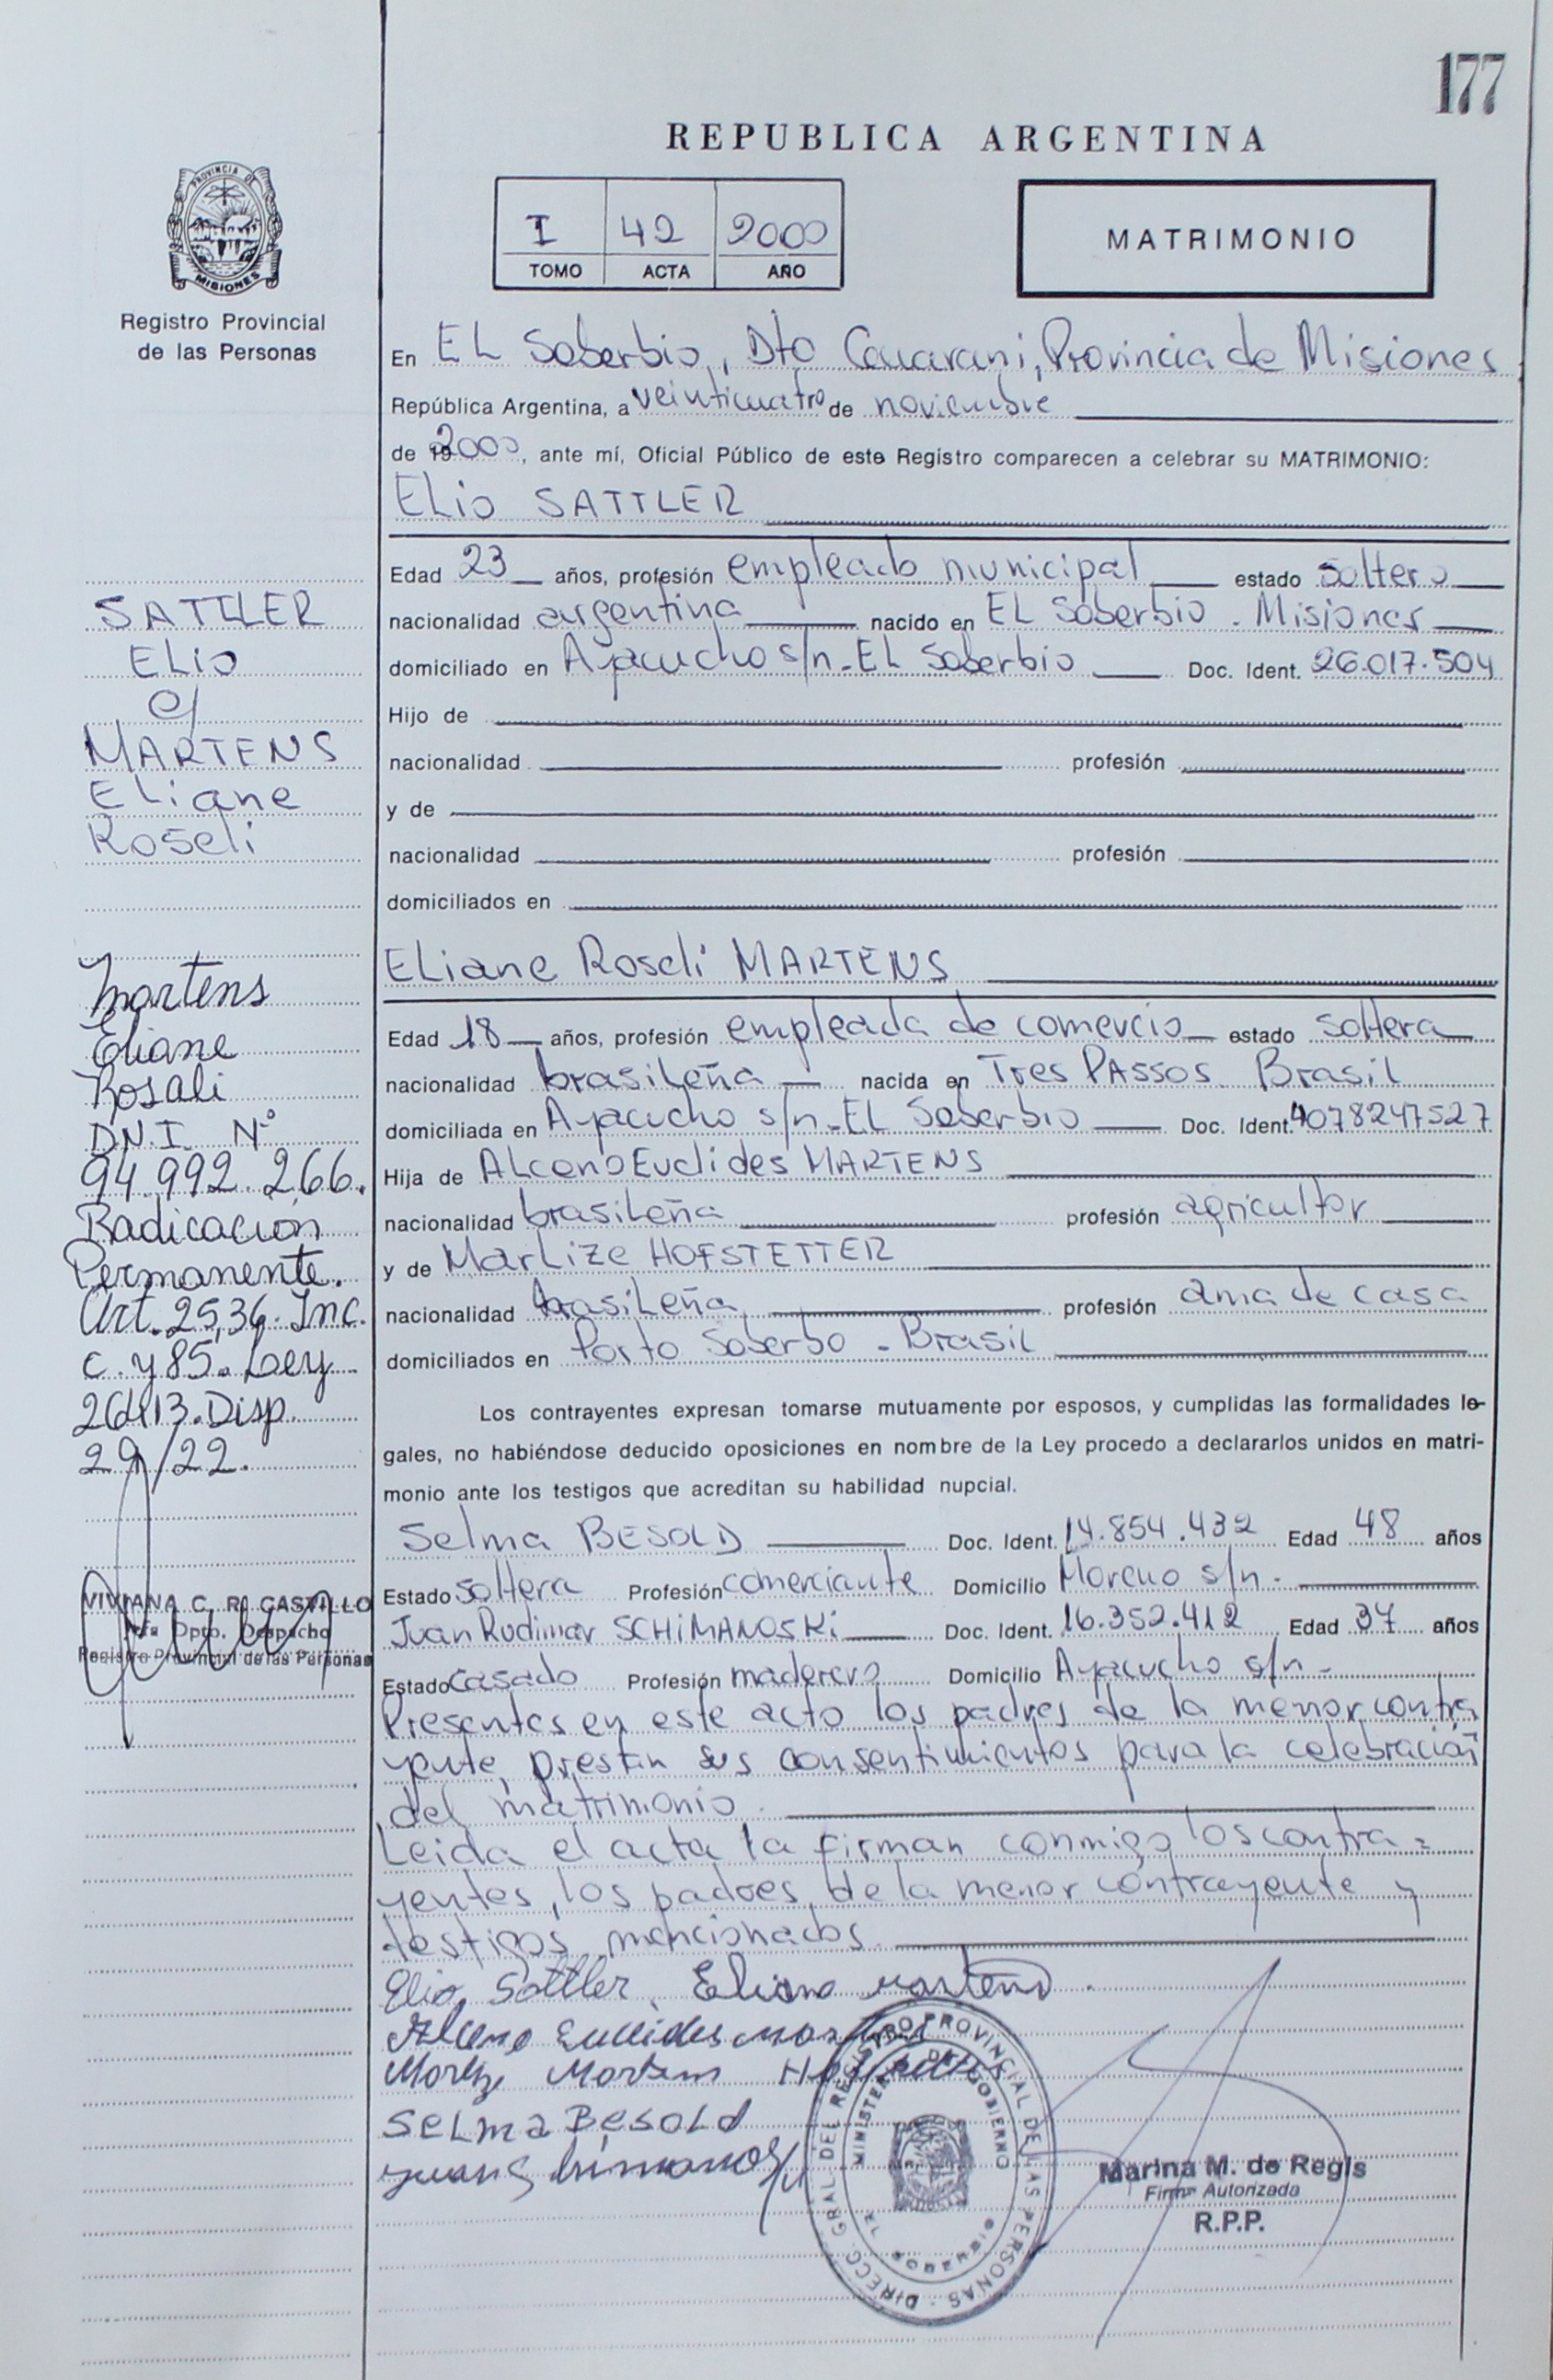 177
REPUBLICA ARGENTINA
PROVINCIA DE
MISIONES
Registro Provincial
de las Personas
I 42 2000
TOMO ACTA AÑO
MATRIMONIO
En EL Soberbio, Dto Guarani, Provincia de Misiones
República Argentina, a veinticuatro de noviembre
de 2000, ante mí, Oficial Público de este Registro comparecen a celebrar su MATRIMONIO:
ELio SATTLER
Edad 23 años, profesión empleado municipal estado soltero
nacionalidad argentina nacido en EL Soberbio - Misiones
domiciliado en Ayacucho s/n - EL Soberbio Doc. Ident. 26.017.504
Hijo de
nacionalidad profesión
y de
nacionalidad profesión
domiciliados en
ELiane Roseli MARTENS
Edad 18 años, profesión empleada de comercio estado soltera
nacionalidad brasileña nacida en Tres PAssos - Brasil
domiciliada en Ayacucho s/n - EL Soberbio Doc. Ident. 4078247527
Hija de ALceno Euclides MARTENS
nacionalidad brasileña profesión agricultor
y de MarLize HOFSTETTER
nacionalidad brasileña profesión ama de casa
domiciliados en Porto Soberbo - Brasil
Los contrayentes expresan tomarse mutuamente por esposos, y cumplidas las formalidades le-
gales, no habiéndose deducido oposiciones en nombre de la Ley procedo a declararlos unidos en matri-
monio ante los testigos que acreditan su habilidad nupcial.
Selma BESOLD Doc. Ident. 14.854.432 Edad 48 años
Estado soltera Profesión comerciante Domicilio Moreno s/n -
Juan Rudimar SCHIMANOSKi Doc. Ident. 16.352.412 Edad 37 años
Estado casado Profesión maderero Domicilio Ayacucho s/n -
Presentes en este acto los padres de la menor contra
yente, prestan sus consentimientos para la celebración
del matrimonio.
Leida el acta la firman conmigo los contra =
yentes, los padres de la menor contrayente y
testigos mencionados.
Elio Sattler, Eliane Martens.
Alceno Euclides Martens
Marlize Martens
SELma BESOLd
SATTLER
ELio
c/
MARTENS
ELiane
Roseli
Martens
Eliane
Rosali
D.N.I. Nº
94.992.266.
Radicación
Permanente.
Art. 25,36. Inc.
c. y 85. Ley
26413. Disp.
29/22.
VIVIANA C. R. CASTILLO
Jefa Dpto. Despacho
Registro Provincial de las Personas
DIRECC. GRAL. DEL REGISTRO PROVINCIAL DE LAS PERSONAS
MINISTERIO DE GOBIERNO
EL SOBERBIO
Marina M. de Regis
Firma Autorizada
R.P.P.